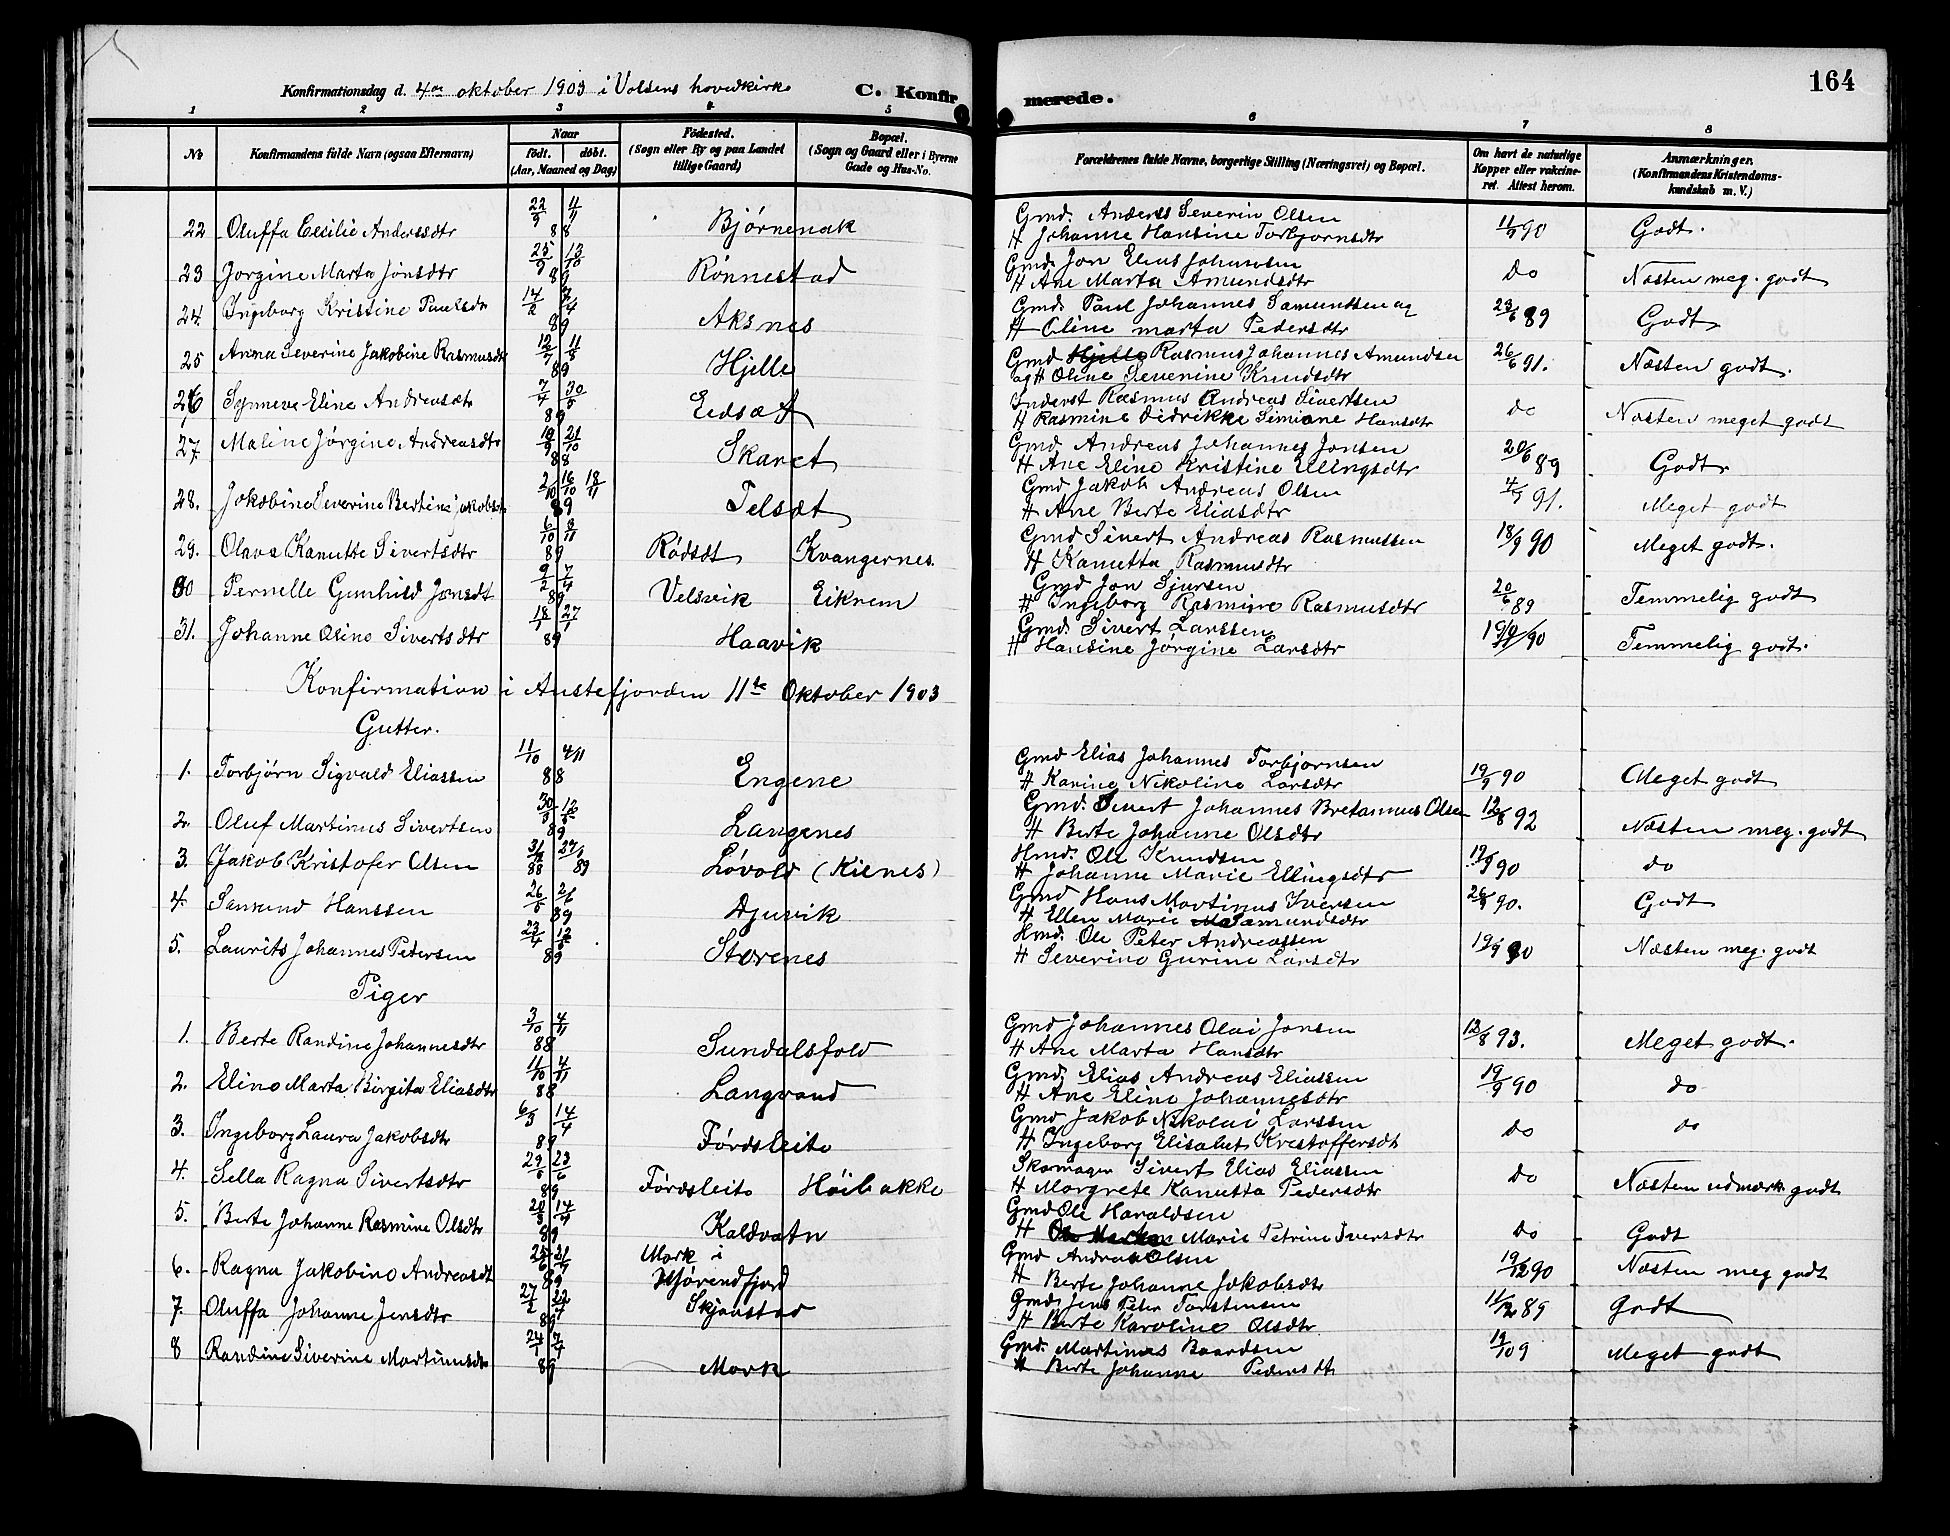 164
Konfirmationsdag d. 4de oktober 1903 i Voldens hovedkirke C. Konfirmerede.
1 2 3 4 5 6 7 8
No Konfirmandens fulde Navn (ogsaa Efternavn) Naar født. døbt. (Aar, Maaned og Dag) Fødested. (Sogn eller By og paa Landet tillige Gaard) Bopæl. (Sogn og Gaard eller i Byerne Gade og Hus-No. Forældrenes fulde Navne, borgerlige Stilling (Næringsvei) og Bopæl. Om havt de naturlige Kopper eller vaccineret. Attest herom. Anmærkninger. (Konfirmandens Kristendomskundskab m. V.)
22 Oluffa Cecilie Andersdtr 22/9 11/11 88 Bjørnenak Gmd. Anders Severin Olsen 11/9 90 Godt.
H Johanne Hansine Torbjørnsdtr
23 Jørgine Marta Jonsdtr 25/9 13/10 89 Rønnestad Gmd. Jon Elias Johansen do Næsten meg. godt
H Ane Marta Amundsdtr
24. Ingeborg Kristine Paulsdr 14/2 7/4 89 Aksnes Gmd. Paul Johannes Samundsen og 23/6 89 Godt
H Oline Marta Pedersdtr
25 Anna Severine Jakobine Rasmusdtr 12/7 11/8 89 Hjelle Gmd Hjelle Rasmus Johannes Amundsen 26/6 91. Næsten godt.
og H Oline Severine Knudsdtr
26 Synneve Eline Andreasdtr 7/4 30/5 89 Eidsæt Inderst Rasmus Andreas Sivertsen do Næsten meget godt
H Rasmine Didrikke Simione Hansdtr
27. Maline Jørgine Andreasdtr 19/9 21/10 88 Skaret Gmd. Andreas Johannes Jonsen 20/6 89 Godt
H Ane Eline Kristine Ellingsdtr
28. Jakobine Severine Bertine Jakobsdtr 2/10 16/10 18/11 89 Telsæt Gmd Jakob Andreas Olsen 4/9 91. Meget godt
H Ane Berte Eliasdtr
29. Olava Kanutte Sivertsdtr 6/10 3/11 89 Rødsæt Kvangernes. Gmd Sivert Andreas Rasmussen 18/9 90 Meget godt.
H Kanutta Rasmusdtr
30 Pernelle Gunhild Jonsdt 9/2 7/4 89 Velsvik Eikrem Gmd Jon Sjursen 20/6 89 Temmelig godt
H Ingeborg Rasmine Rasmusdtr
31. Johanne Oline Sivertsdtr 18/1 27/1 89 Haavik Gmd. Sivert Larssen 90 Temmelig godt.
H Hansine Jørgine Larsdtr
Konfirmation i Austefjorden 11te Oktober 1903
Gutter.
1. Torbjørn Sigvald Eliassen 11/10 4/11 88 Engene Gmd Elias Johannes Torbjørnsen 19/9 90 Meget godt
H Karine Nikoline Larsdtr
2. Oluf Martinus Sivertsen 89 Langenes Gmd. Sivert Johannes Bretannus Olsen 12/8 92 Næsten meg. godt
H Berte Johanne Olsdtr
3. Jakob Kristofer Olsen 31/12 88 27/1 89 Løvold (Kienes) Hmd. Ole Knudsen 19/9 90 do
H Johanne Marie Ellingsdtr
4. Samund Hanssen 26/5 2/6 89 Djuvik Gmd Hans Martinus Iversen 90. Godt
H Ellen Marie Samundsdtr
5. Laurits Johannes Petersen 23/4 89 Storenes Hmd. Ole Peter Andreassen 19/9 90 Næsten meg. godt
H Severine Gurine Larsdtr
Piger
1. Berte Randine Johannesdtr 3/10 4/11 88 Sundalsfold Gmd Johannes Olai Jonsen 12/8 93. Meget godt.
H Ane Marta Hansdtr
2. Eline Marta Birgita Eliasdtr 11/10 4/11 88 Langvand Gmd. Elias Andreas Eliassen 19/9 90 do
H Ane Eline Johannesdtr
3. Ingeborg Laura Jakobsdtr 6/3 14/4 89 Førdsleite Gmd Jakob Nikolai Larssen do do
H Ingeborg Elisabet Kristoffersdt
4. Sella Ragna Sivertsdtr 29/5 23/6 89 Førdsleite Høibakke Skomager Sivert Elias Eliassen do Næsten udmærk. godt
H Margrete Kanutta Pedersdtr
5. Berte Johanne Rasmine Olsdtr 20/3 14/4 89 Kaldvatn Gmd Ole Haraldsen do Godt
H Marie Petrine Iversdtr
6. Ragna Jakobine Andreasdt 25/6 21/7 89 Mork i Hjørendfjord Gmd Andreas Olsen 19/12 90 Næsten meg godt
H Berte Johanne Jakobsdtr
7. Oluffa Johanne Jensdtr 27/2 22/4 89 Skjaustad Gmd. Jens Peter Torstensen 11/12 89 Godt
H Berte Karoline Olsdtr
8 Randine Siverine Martinusdtr 24/1 7/4 89 Mork Gmd. Martinus Baardsen 19/10 9 Meget godt
H Berte Johanne Pedersdt